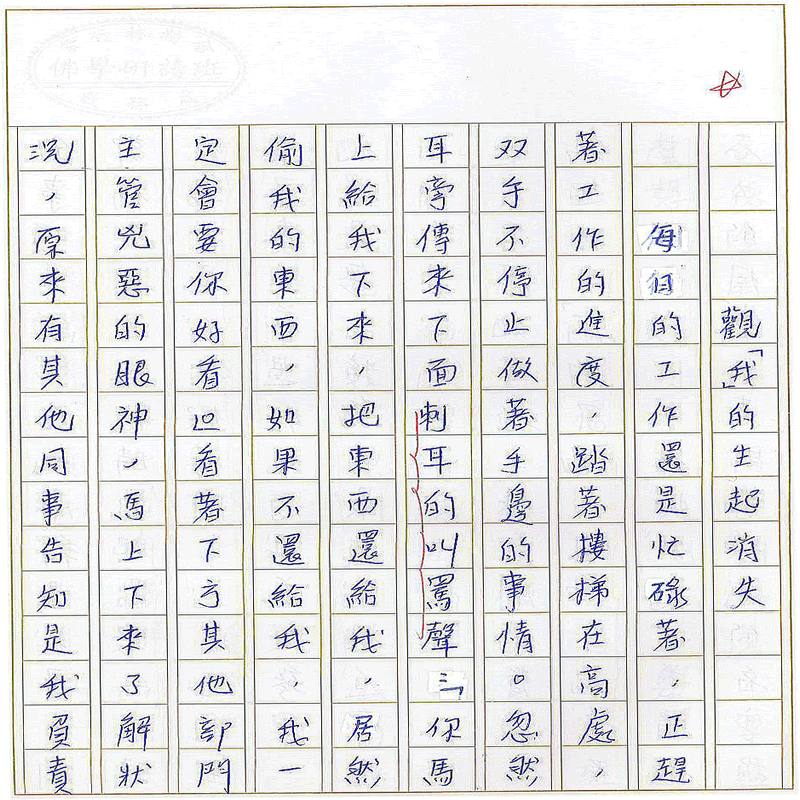 佛學研讀班
觀「我」的生起消失
每日的工作還是忙碌著,正趕
著工作的進度,踏著摟梯在高處,
双手不停止做著手邊的事情。忽然
耳旁傳來下面刺耳的叫罵聲:「你馬
上給我下來,把東西還給我,居然
偷我的東西,如果不還給我,我一
定會要你好看」看著下方其他部門
主管兇惡的眼神,馬上下來了解狀
況,原來有其他同事告知是我負責